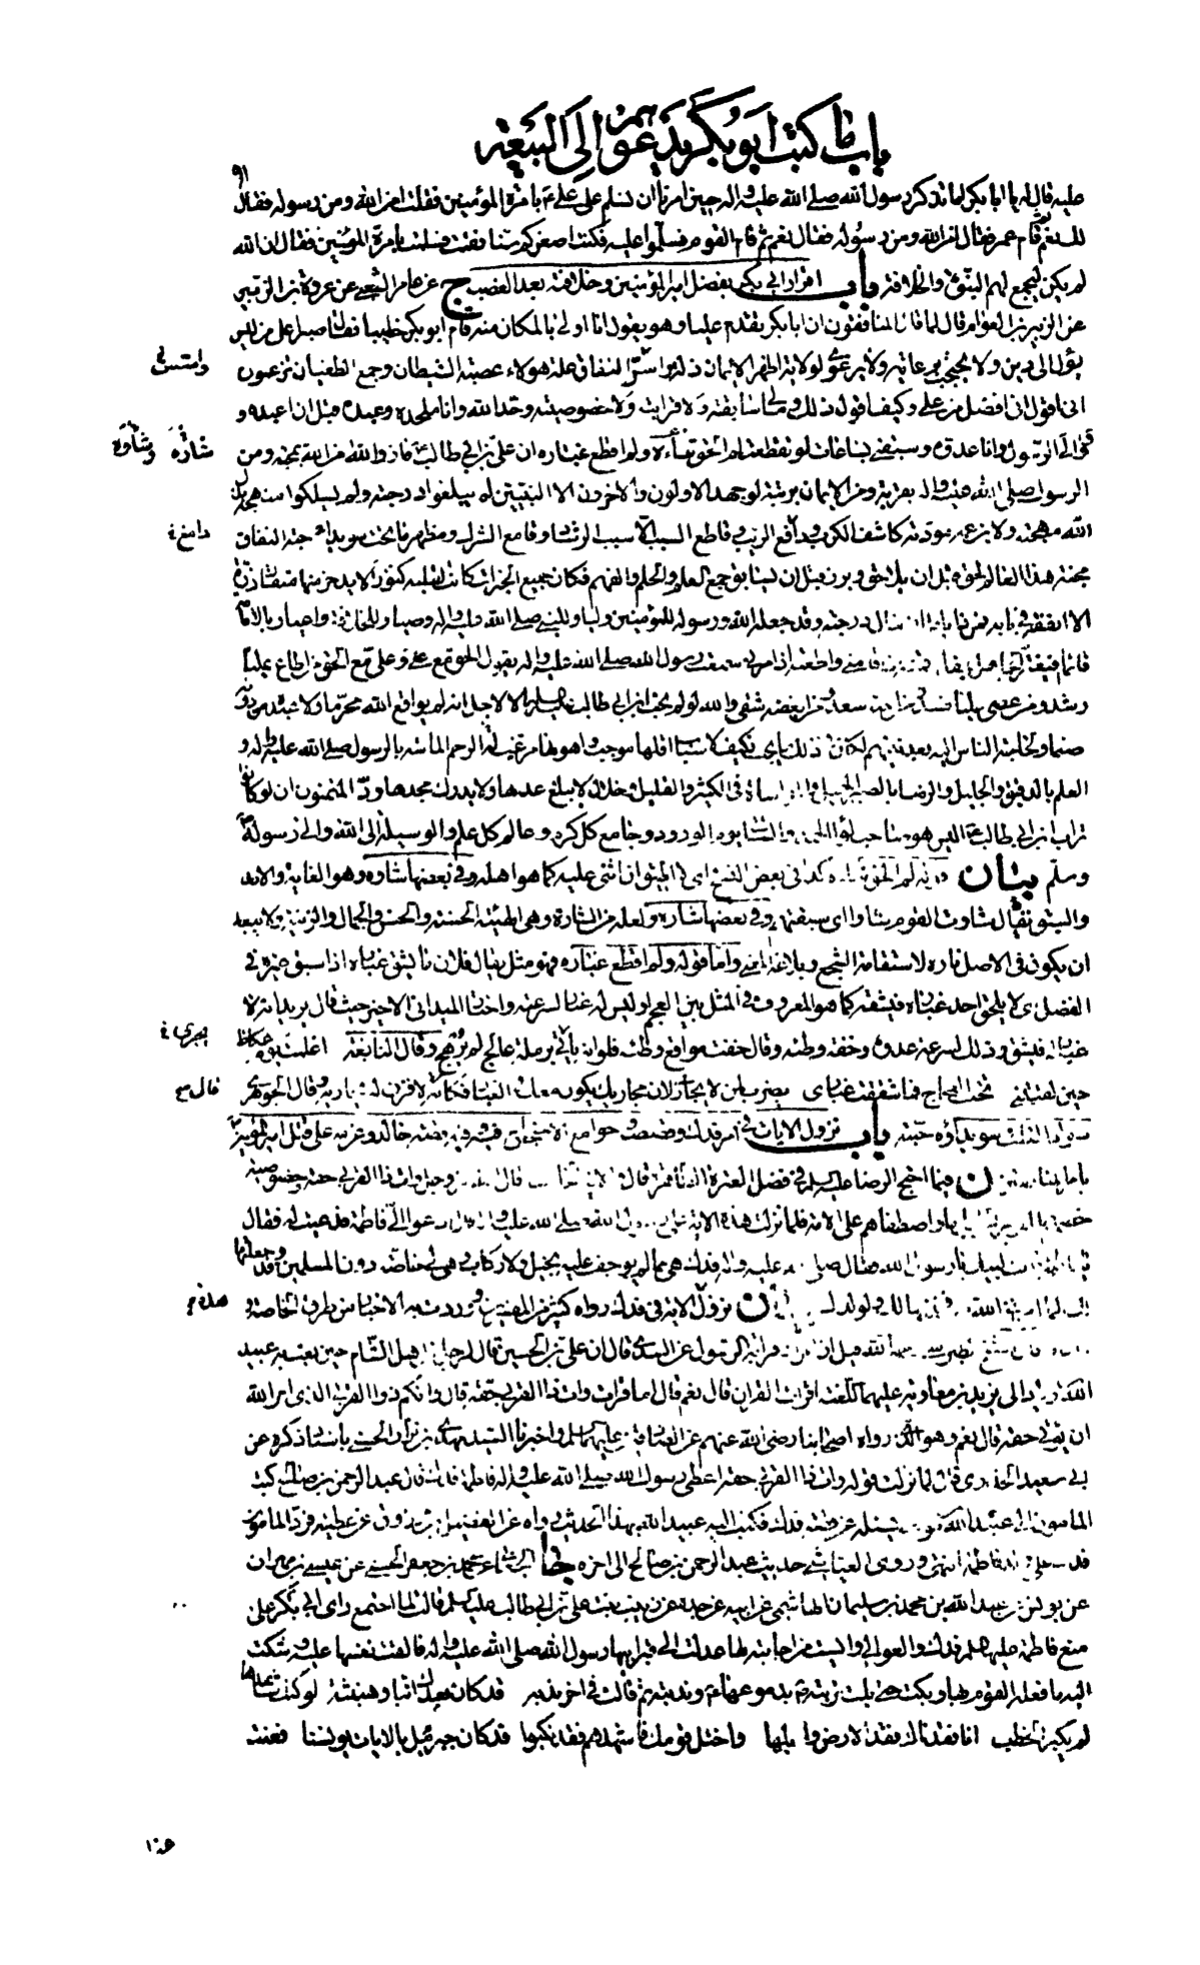 باب ما كتب ابو بكر يدعوهم الى البيعة
٩١
عليه قال له يا ابا بكر اما تذكر رسول الله صلى الله عليه واله حين امرنا ان نسلم على على ع بامرة المؤمنين فقلت امن الله ومن رسوله فقال
لك نعم ثم قام عمر فقال امن الله ومن رسوله فقال نعم ثم قام القوم فسلموا عليه فكنت اصغركم سنا فقمت فسلمت بامرة المؤمنين فقال ان الله
لم يكن ليجمع لهم النبوة والخلافة باب اقرار ابى بكر بفضل امير المؤمنين وخلافته بعد الغصب ج عن عامر الشعبى عن عروة بن الزبير
عن الزبير بن العوام قال لما قال المنافقون ان ابا بكر تقدم عليا وهو يقول انا اولى بالمكان منه قام ابو بكر خطيبا فقال صبرا على من ليس
يؤل الى دين ولا يحتجب برعاية ولا يرعوى لولاية اظهر الايمان ذلة واسر النفاق علة هؤلاء عصبة الشيطان وجمع الطغيان تزعمون
انى اقول انى افضل من على وكيف اقول ذلك وما لى سابقته ولا قرابته ولا خصوصيته وحد الله وانا ملحده وعبده قبل ان اعبده و
والى الرسول وانا عدوه وسبقنى بساعات لو تقطعت لم الحق ثناءه ولم اقطع غباره ان على بن ابى طالب فاز والله من الله بمحبة ومن
الرسول صلى الله عليه واله بقربة ومن الايمان برتبة لو جهد الاولون والاخرون الا النبيين لم يبلغوا درجته ولم يسلكوا منهجه بذل
الله مهجته ولابن عمه مودته كاشف الكرب ودافع الريب وقاطع السبب الا سبب الرشاد وقامع الشرك ومظهر ما تحت سويداء حبة النفاق
محنة هذا العالم لحق قبل ان يلاحق وبرز قبل ان يسابق جمع العلم والحلم والفهم فكان جميع الخيرات كانت لقلبه كنوزا لا يدخر منها مثقال ذرة
الا انفقه فى بابه فمن ذا ينال درجته وقد جعله الله ورسوله للمؤمنين وليا وللنبى صلى الله عليه واله وصيا وللخلافة واعيا وبالامامة
رشد ومن عصى عليا فسد ومن احبه سعد ومن ابغضه شقى والله لو لم يحب ابن ابى طالب عليه السلام الا لاجل انه لم يواقع الله محرما ولا عبد من دونه
صنما ولحاجة الناس اليه بعد نبيهم لكان فى ذلك ما يجب فكيف لاسباب اقلها موجب واهونها مرغب له الرحم الماسة بالرسول صلى الله عليه واله و
العلم بالدقيق والجليل والرضا بالصبر الجميل والمواساة فى الكثير والقليل وخلال لا يبلغ عدها ولا يدرك مجدها ود المتمنون ان لو كانوا
تراب ابن ابى طالب ع اليس هو صاحب لواء الحمد والساقى يوم الورود وجامع كل كرم وعالم كل علم والوسيلة الى الله والى رسوله ص
وسلم بيان قوله لم الحق ثناءه كذا فى بعض النسخ اى لا اطيق ان اثنى عليه كما هو اهله وفى بعضها شاوه وهو الغاية والامد
والسبق يقال شاوت القوم شاوا اى سبقتهم وفى بعضها شاره ولعله من الشارة وهى الهيئة الحسنة والحسن والجمال والزينة ولا يبعد
ان يكون فى الاصل ناره لاستقامة السجع وبلاغة المعنى واما قوله ولم اقطع غباره فهو مثل يقال فلان ما يشق غباره اذا سبق غيره فى
الفضل اى لا يلحق احد غباره فيشقه كما هو المعروف فى المثل بين العجم او ليس له غبار لسرعته واختار الميدانى الاخير حيث قال يريد انه لا
غبار له فيشق وذلك لسرعة عدوه وخفة وطئه وقال خفت مواقع وطئه فلو انه يجرى برملة عالج لم يرهج وقال النابغة اعلمت يوم عكاظ
حين لقيتنى تحت العجاج فما شققت غبارى يضرب لمن لا يجارى لان مجاريك يكون معك فى الغبار فكانه لا قرن له يجاريه وقال الجوهرى
سواد القلب سويداؤه حبته باب نزول الايات فى امر فدك وقصصه وجوامع الاحتجاج فيه وفيه قصة خالد وعزمه على قتل امير المؤمنين
بامر المنافقين ن فيما احتج الرضا عليه السلام فى فضل العترة الطاهرة قال والاية الخامسة قال الله عز وجل وات ذا القربى حقه خصوصية
خصهم الله العزيز الجبار بها واصطفاهم على الامة فلما نزلت هذه الاية على رسول الله صلى الله عليه واله قال ادعوا لى فاطمة فدعيت له فقال
يا فاطمة قالت لبيك يا رسول الله فقال صلى الله عليه واله فدك هى مما لم يوجف عليه بخيل ولا ركاب وهى لى خاصة دون المسلمين وقد جعلتها
لك لما امرنى الله به فخذيها لك ولولدك بيان نزول الاية فى فدك رواه كثير من المفسرين ووردت به الاخبار من طرق الخاصة و
ان يؤتى حقه قال نعم وهو الذى رواه اصحابنا رضى الله عنهم عن الصادقين عليهما السلام واخبرنا السيد مهدى بن نزار الحسنى باسناد ذكره عن
ابى سعيد الخدرى قال لما نزلت قوله وات ذا القربى حقه اعطى رسول الله صلى الله عليه واله فاطمة فدك قال عبد الرحمن بن صالح كتب
المامون الى عبيد الله بن موسى يسئله عن قصة فدك فكتب اليه عبيد الله بهذا الحديث رواه عن الفضيل بن مرزوق عن عطية فرد المامون
فدك على ولد فاطمة انتهى وروى العياشى حديث عبد الرحمن بن صالح الى اخره جا الجعابى عن محمد بن جعفر الحسنى عن عيسى بن مهران
عن يونس عن عبد الله بن محمد بن سليمان الهاشمى عن ابيه عن جده عن زينب بنت على بن ابى طالب عليه السلام قالت لما اجتمع راى ابى بكر على
منع فاطمة عليها السلم فدك والعوالى وايست من اجابته لها عدلت الى قبر ابيها رسول الله صلى الله عليه واله فالقت نفسها عليه وشكت
اليه ما فعله القوم بها وبكت حتى بلت تربته ع بدموعها ع وندبته ثم قالت فى اخر ندبتها قد كان بعدك انباء وهنبثة لو كنت شاهدها
لم يكثر الخطب انا فقدناك فقد الارض وابلها واختل قومك فاشهدهم فقد نكبوا قد كان جبرئيل بالايات يونسنا فغبت
شاره وشاوه
دامغ خ
يجرى خ
قال
عنا